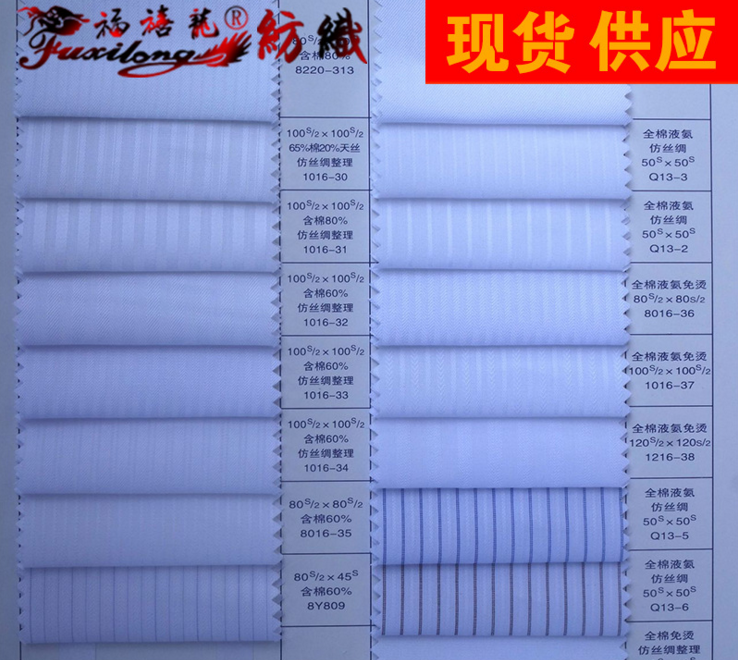 福禧龍®紡織
Fuxilong
现货 供应
含棉80%
8220-313
100S/2×100S/2
65%棉20%天丝
仿丝绸整理
1016-30
100S/2×100S/2
含棉80%
仿丝绸整理
1016-31
100S/2×100S/2
含棉60%
仿丝绸整理
1016-32
100S/2×100S/2
含棉60%
仿丝绸整理
1016-33
100S/2×100S/2
含棉60%
仿丝绸整理
1016-34
80S/2×80S/2
含棉60%
8016-35
80S/2×45S
含棉60%
8Y809
全棉液氨
仿丝绸
50S×50S
Q13-3
全棉液氨
仿丝绸
50S×50S
Q13-2
全棉液氨免烫
80S/2×80S/2
8016-36
全棉液氨免烫
100S/2×100S/2
1016-37
全棉液氨免烫
120S/2×120S/2
1216-38
全棉液氨
仿丝绸
50S×50S
Q13-5
全棉液氨
仿丝绸
50S×50S
Q13-6
全棉免烫
仿丝绸整理